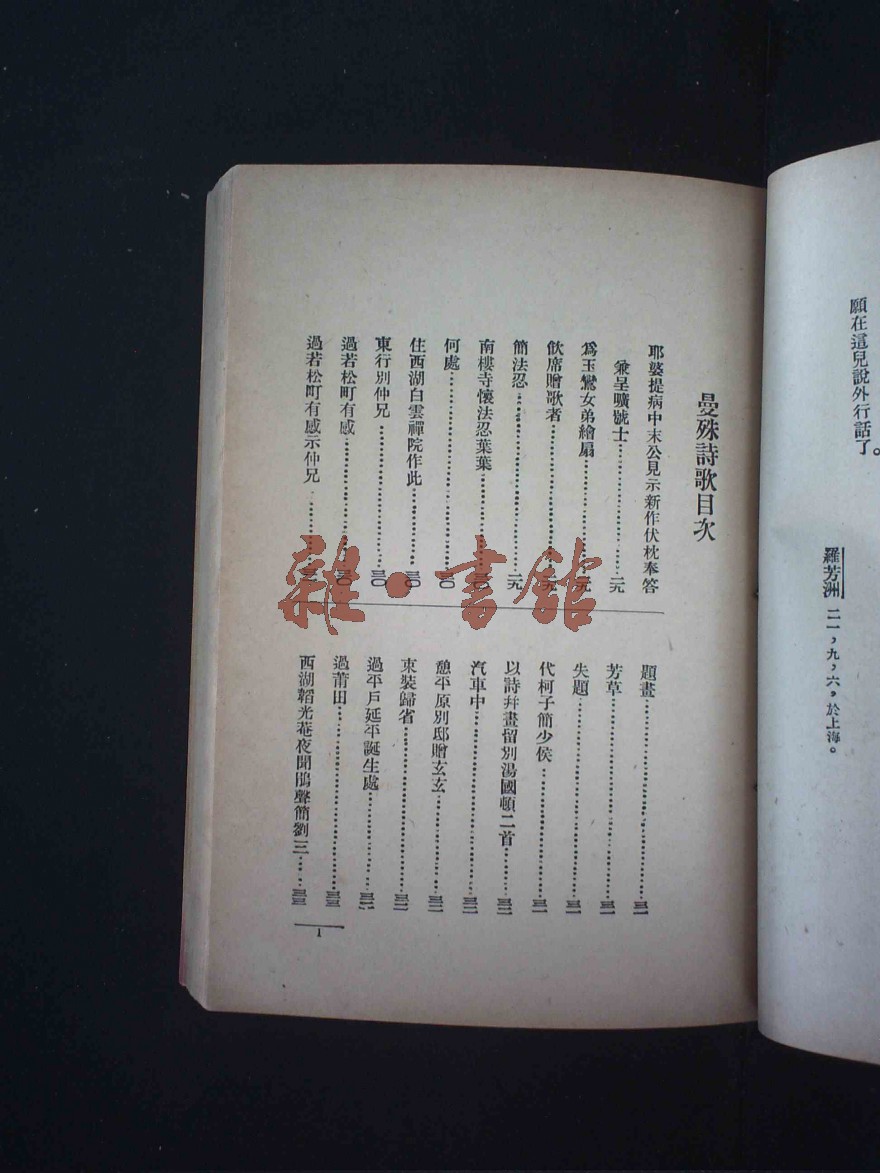 願在這兒說外行話了。
羅芳洲 二一，九，六，於上海。
曼殊詩歌目次
耶婆提病中末公見示新作伏枕奉答
兼呈曠處士……二九
為玉鸞女弟繪扇……二九
飲席贈歌者
簡法忍……二九
南樓寺懷法忍葉葉……三〇
何處……三〇
住西湖白雲禪院作此……三〇
東行別仲兄……三〇
過若松町有感……三〇
過若松町有感示仲兄
題畫……三一
芳草……三一
失題……三一
代柯子簡少侯……三一
以詩幷畫留別湯國頓二首……三二
汽車中……三二
憩平原別邸贈玄玄……三二
束裝歸省……三二
過平戶延平誕生處……三二
過莆田……三三
西湖韜光菴夜聞鵑聲簡劉三……三三
1
雜·書館